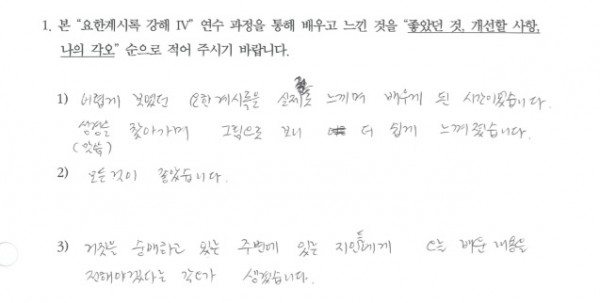 1. 본 "요한계시록 강해 Ⅳ" 연수 과정을 통해 배우고 느낀 것을 "좋았던 것, 개선할 사항,
나의 각오" 순으로 적어 주시기 바랍니다.
1) 어렵게 보였던 요한계시록을 실제로 느끼며 배우게 된 시간이었습니다.
성경을 찾아가며 그림으로 보니 더 쉽게 느껴졌습니다.
(말씀)
2) 모든것이 좋았습니다.
3) 거짓을 순애하고 있는 주변에 있는 지인들에게 배운 내용을
전해야겠다는 각오가 생겼습니다.